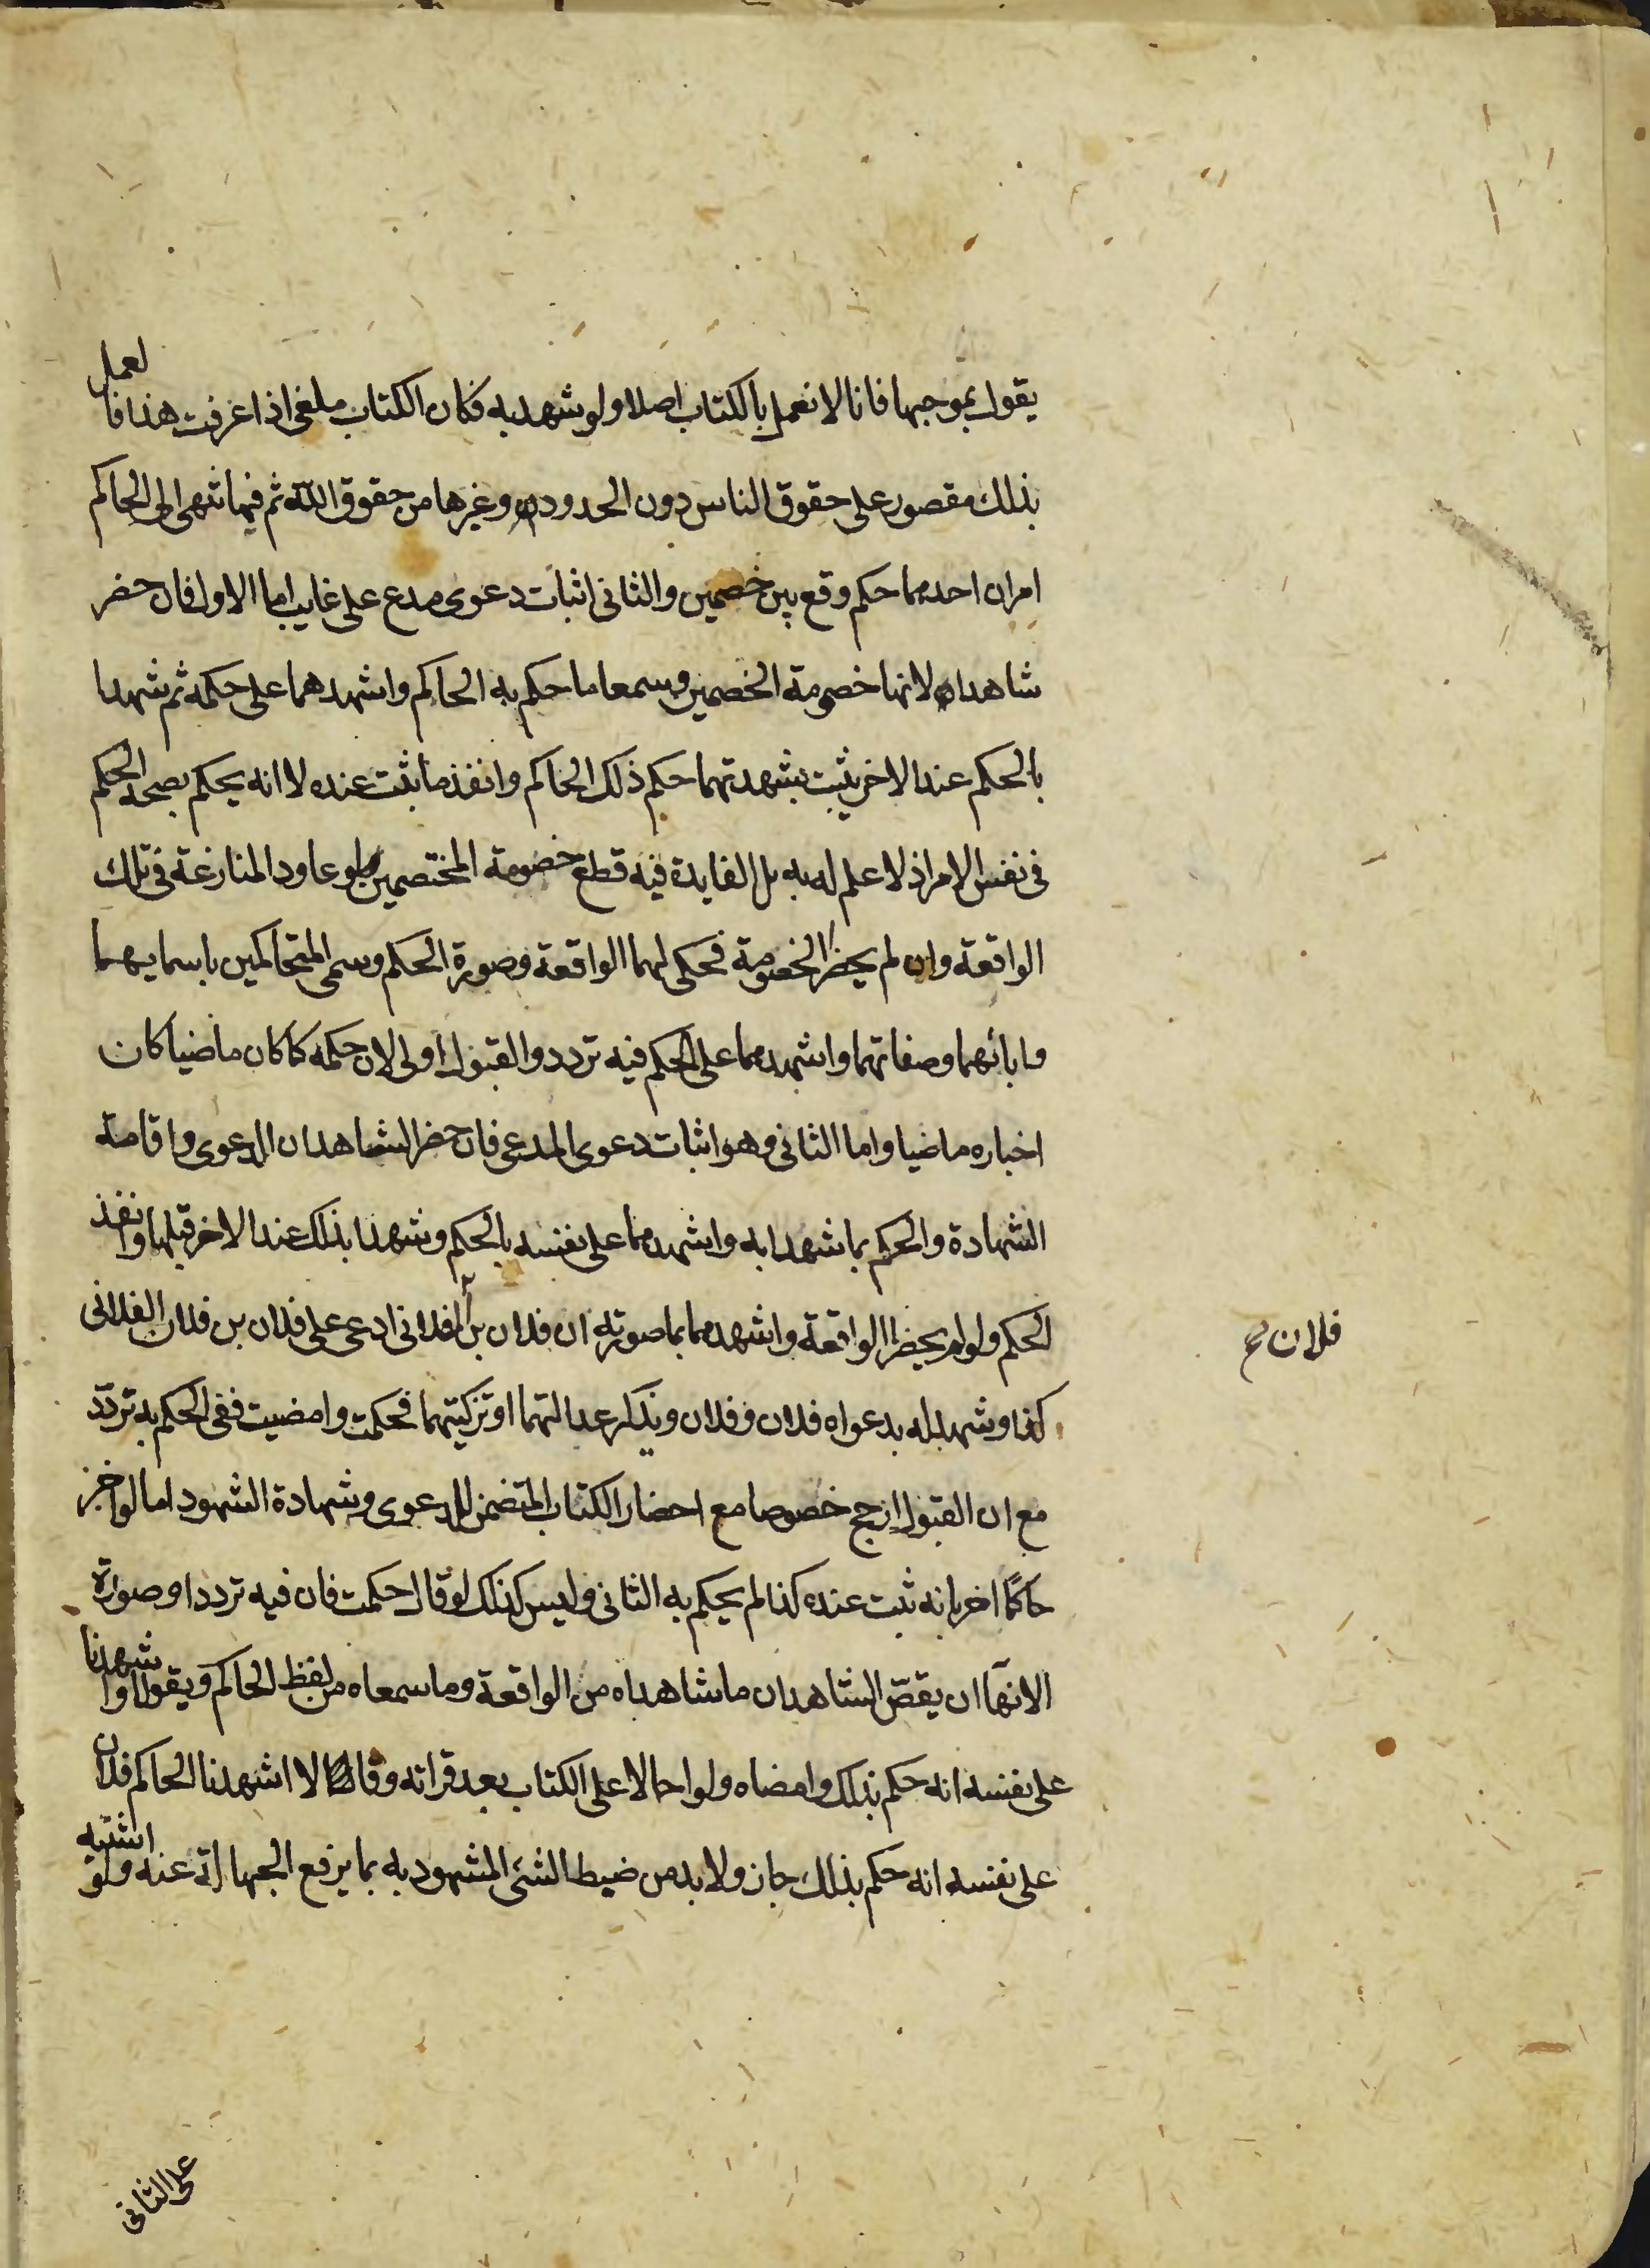 يقول بموجبها فانا لا نعمل بالكتاب اصلا ولو شهد به فكان الكتاب ملغى اذا عرفت هذا فالعمل
بذلك مقصور على حقوق الناس دون الحدود وغيرها من حقوق الله ثم فيما ينهى الى الحاكم
امران احدهما حكم وقع بين خصمين والثانى اثبات دعوى مدع على غايب اما الاول فان حضر
شاهدان لانها خصومة الخصمين وسمعا ما حكم به الحاكم واشهدهما على حكمه ثم شهدا
بالحكم عند الاخر يثبت بشهدتهما حكم ذلك الحاكم وانفذ ما ثبت عنده لا انه يحكم بصحة الحكم
فى نفس الامر اذ لا علم له به بل الفايدة فيه قطع خصومة المختصمين لو عاود المنازعة فى تلك
الواقعة وان لم يحضرا الخصومة فحكى لهما الواقعة وصورة الحكم وسمى المتحاكمين باسمايهما
وابائهما وصفاتهما واشهدهما على الحكم فيه تردد والقبول اولى لان حكمه كما كان ماضيا كان
اخباره ماضيا واما الثانى وهو اثبات دعوى المدعى فان حضر الشاهدان الدعوى واقامة
الشهادة والحكم بما شهدا به واشهدهما على نفسه بالحكم وشهدا بذلك عند الاخر قبلها وانفذ
الحكم ولو لم يحضرا الواقعة واشهدهما بما صورته ان فلان بن الفلانى ادعى على فلان بن فلان الفلانى
فلان صح
كذا وشهد له بدعواه فلان وفلان ويذكر عدالتهما او تزكيتهما فحكمت وامضيت ففى الحكم به تردّد
مع ان القبول ارجح خصوصا مع احضار الكتاب المتضمن للدعوى وشهادة الشهود اما لو اخبر
حاكمًا اخر بانه ثبت عنده كذا لم يحكم به الثانى وليس كذلك لو قال حكمت فان فيه تردد وصورة
الانهآ ان يقصّ الشاهدان ما شاهداه من الواقعة وما سمعاه من لفظ الحاكم ويقولا واشهدنا
على نفسه انه حكم بذلك وامضاه ولو احالا على الكتاب بعد قراته وقالا اشهدنا الحاكم فلان
على نفسه انه حكم بذلك جاز ولا بد من ضبط الشئ المشهود به بما يرفع الجهالة عنه ولو اشتبه
على الثانى